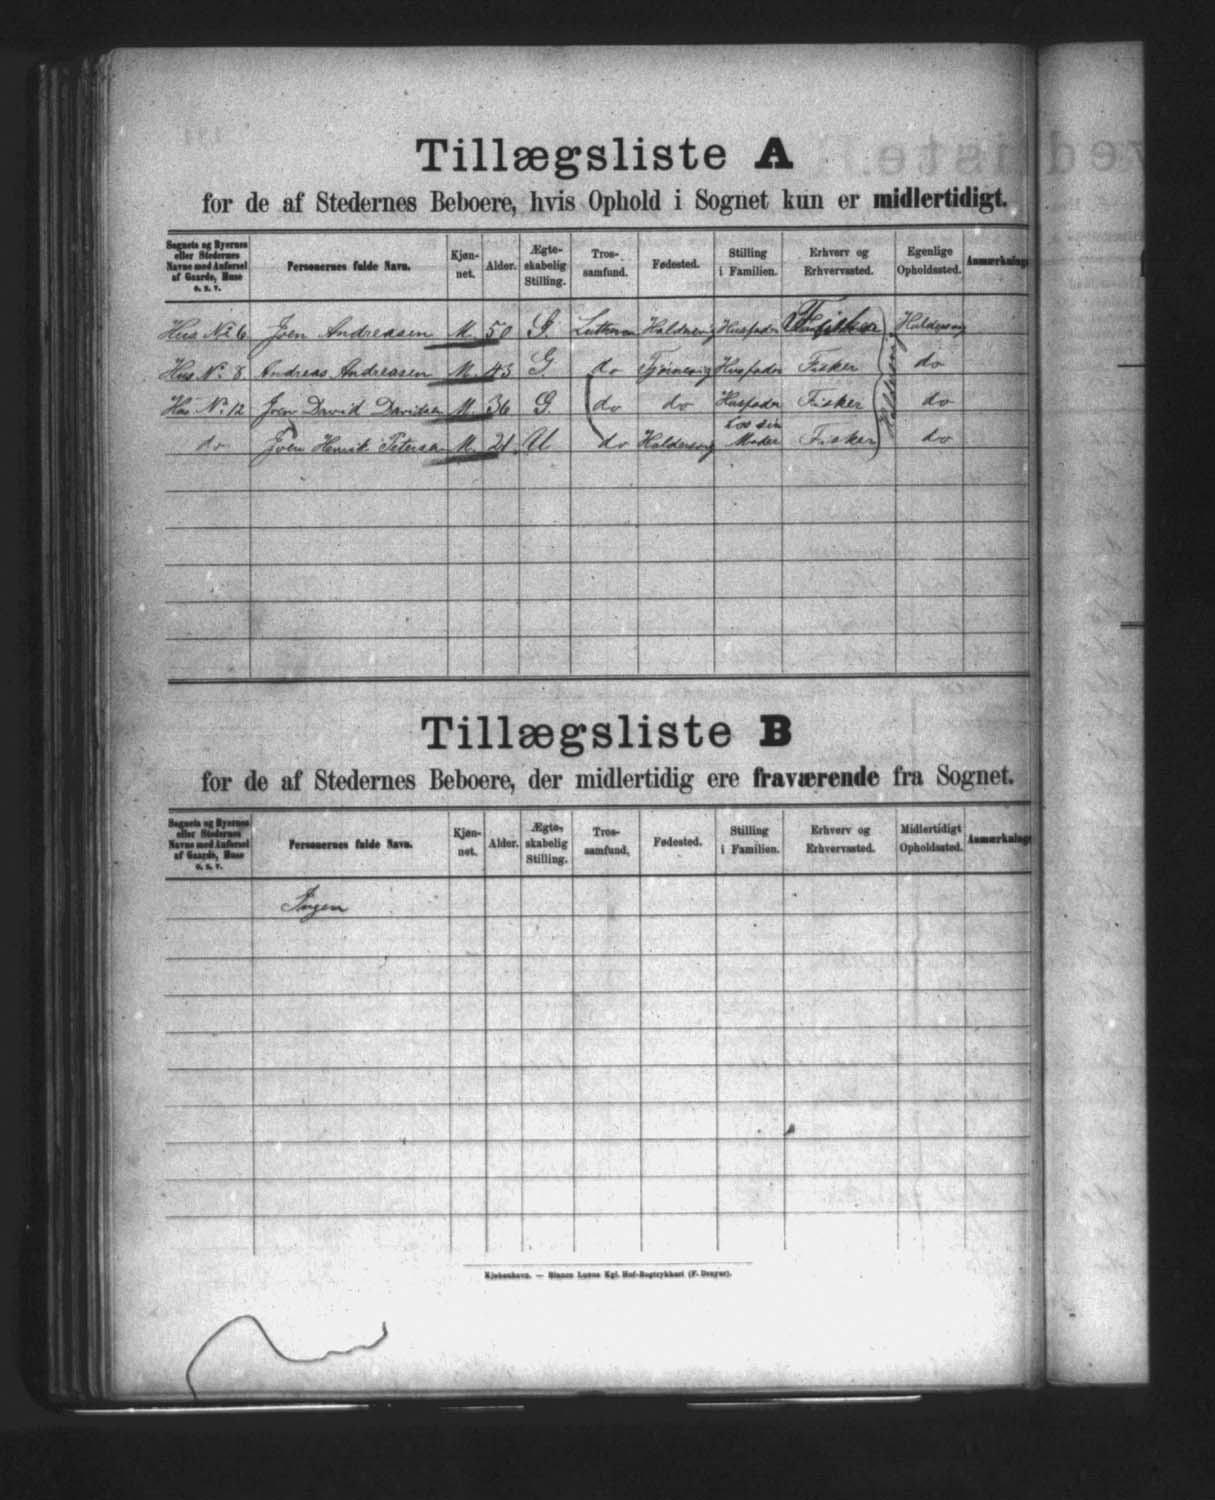 Tillægsliste A
for de af Stedernes Beboere, hvis Ophold i Sognet kun er midlertidigt.
Sognets og Byernes eller Stedernes Navne med Anførsel af Gaarde, Huse o. s. v. Personernes fulde Navn. Kjøn-net. Alder. Ægte-skabelig Stilling. Tros-samfund. Fødested. Stilling i Familien. Erhverv og Erhvervssted. Egenlige Opholdssted. Anmærkning
Hus No 6 Joen Andreasen M. 50 G Huusfader Fisker
Hus No 8. Andreas Andreasen M. 43 G. do Husfader Fisker do
Hus No 12 Joen David Davidsen M. 36 G. do do Husfader Fisker do
do Joen Henrik Petersen M. 21. U do Hos sin Moder Fisker do
Tillægsliste B
for de af Stedernes Beboere, der midlertidig ere fraværende fra Sognet.
Sognets og Byernes eller Stedernes Navne med Anførsel af Gaarde, Huse o. s. v. Personernes fulde Navn. Kjøn-net. Alder. Ægte-skabelig Stilling. Tros-samfund. Fødested. Stilling i Familien. Erhverv og Erhvervssted. Midlertidigt Opholdssted. Anmærkning
Ingen
Kjøbenhavn. — Bianco Lunos Kgl. Hof-Bogtrykkeri (F. Dreyer).